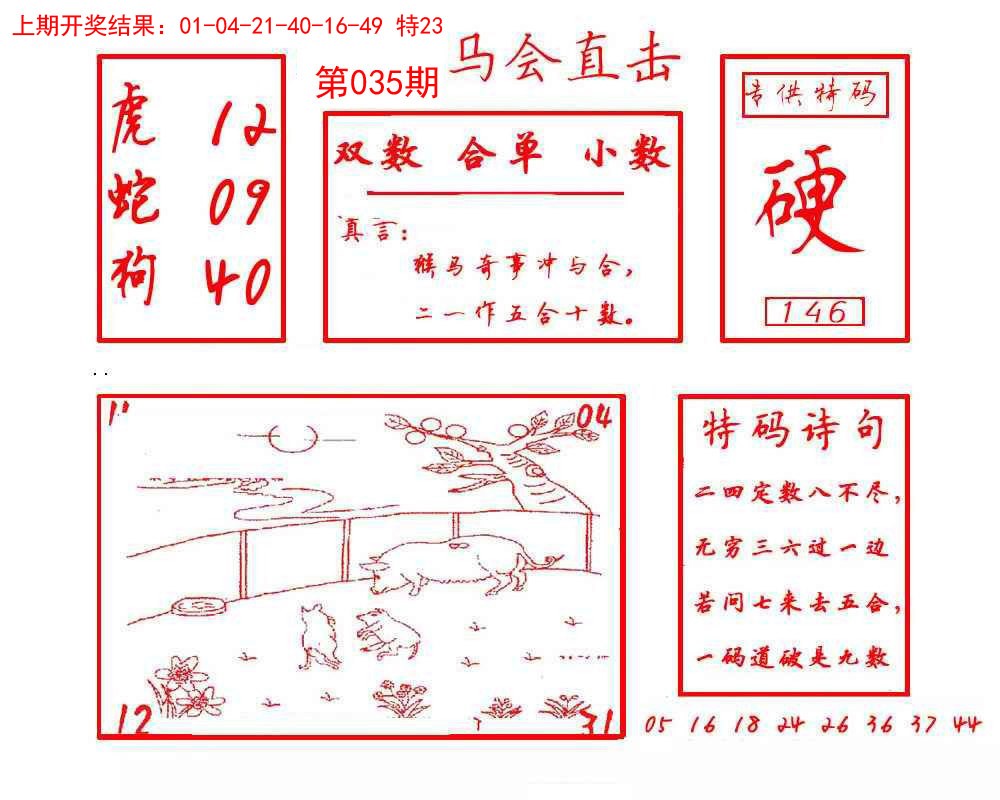 上期开奖结果：01-04-21-40-16-49 特23
马会直击
第035期
虎 12
蛇 09
狗 40
双数 合单 小数
真言：
猴马奇事冲与合，
二一作五合十数。
专供特码
硬
146
..
11
04
12
31
特码诗句
二四定数八不尽，
无穷三六过一边
若问七来去五合，
一码道破是九数
05 16 18 24 26 36 37 44